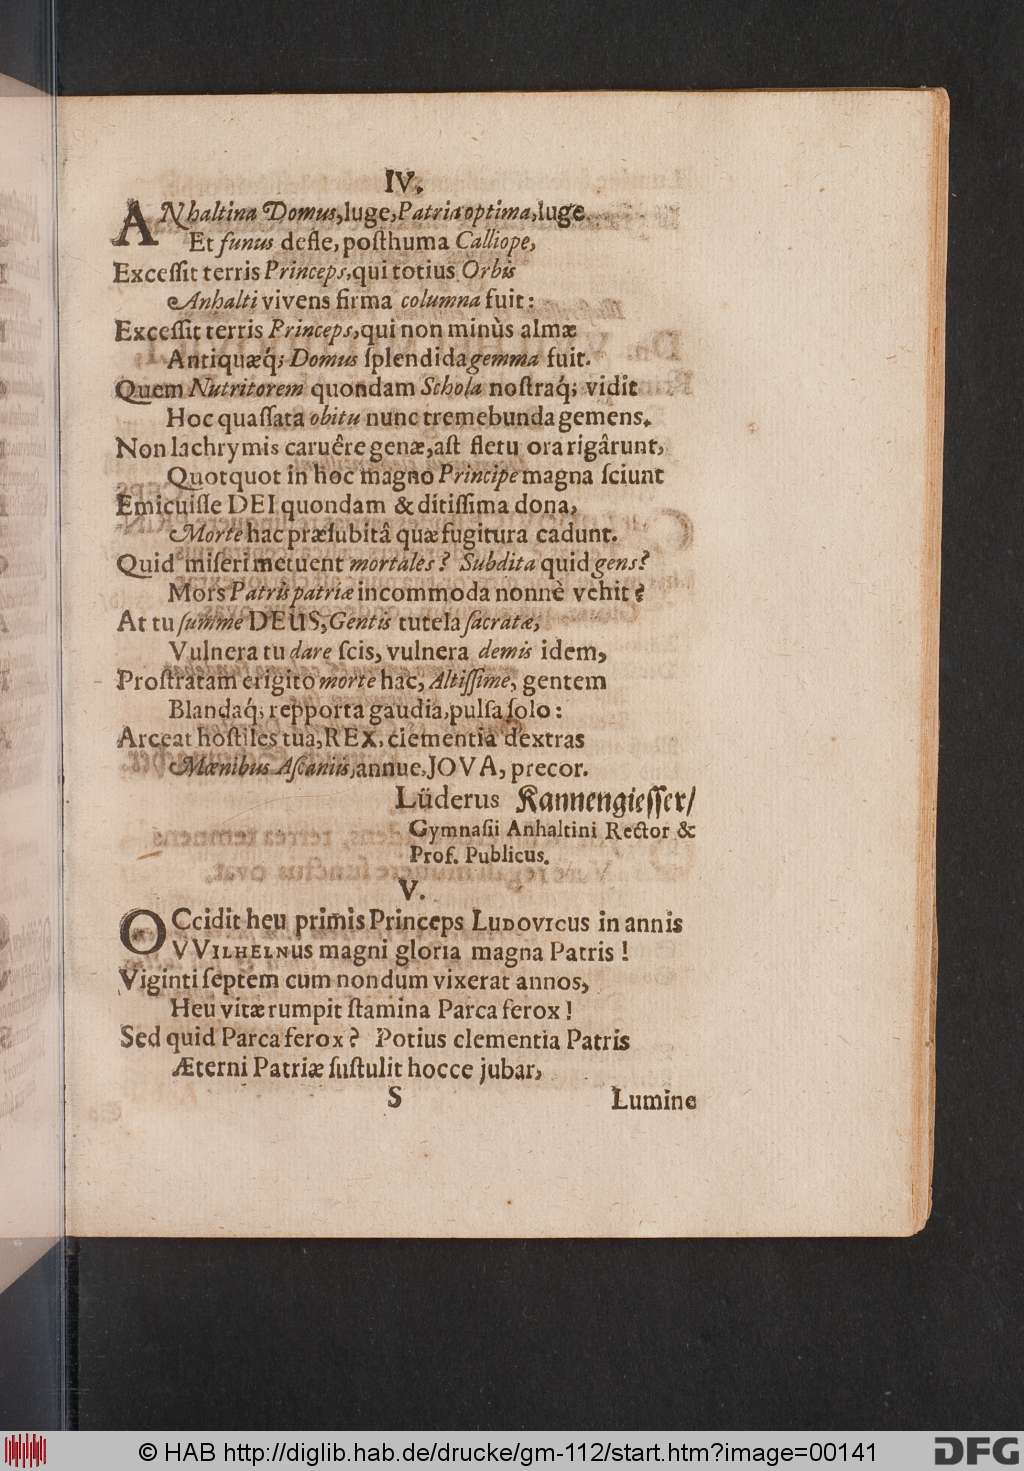 IV.
ANhaltina Domus, luge, Patria optima, luge
Et funus defle, poſthuma Calliope,
Exceſſit terris Princeps, qui totius Orbis
Anhalti vivens firma columna fuit:
Exceſſit terris Princeps, qui non minùs almæ
Antiquæq́; Domus ſplendida gemma fuit.
Quem Nutritorem quondam Schola noſtraq́; vidit
Hoc quaſſata obitu nunc tremebunda gemens.
Non lachrymis caruêre genæ, aſt fletu ora rigârunt,
Quotquot in hoc magno Principe magna ſciunt
Emicuiſſe DEI quondam & ditiſſima dona,
Morte hac præſubitâ quæ fugitura cadunt.
Quid miſeri metuent mortales? Subdita quid gens?
Mors Patris patriæ incommoda nonnè vehit?
At tu ſumme DEUS, Gentis tutela ſacratæ,
Vulnera tu dare ſcis, vulnera demis idem,
Proſtratam erigito morte hac, Altiſſime, gentem
Blandaq́; repporta gaudia, pulſa ſolo:
Arceat hoſtiles tua, REX, clementia dextras
Mœnibus Aſcaniis, annue, JOVA, precor.
Lüderus Kannengieſſer/
Gymnaſii Anhaltini Rector &
Prof. Publicus.
V.
OCcidit heu primis Princeps LUDOVICUS in annis
VVILHELNUS magni gloria magna Patris!
Viginti ſeptem cum nondum vixerat annos,
Heu vitæ rumpit ſtamina Parca ferox!
Sed quid Parca ferox? Potius clementia Patris
Æterni Patriæ ſuſtulit hocce jubar,
S Lumine
© HAB http://diglib.hab.de/drucke/gm-112/start.htm?image=00141
DFG